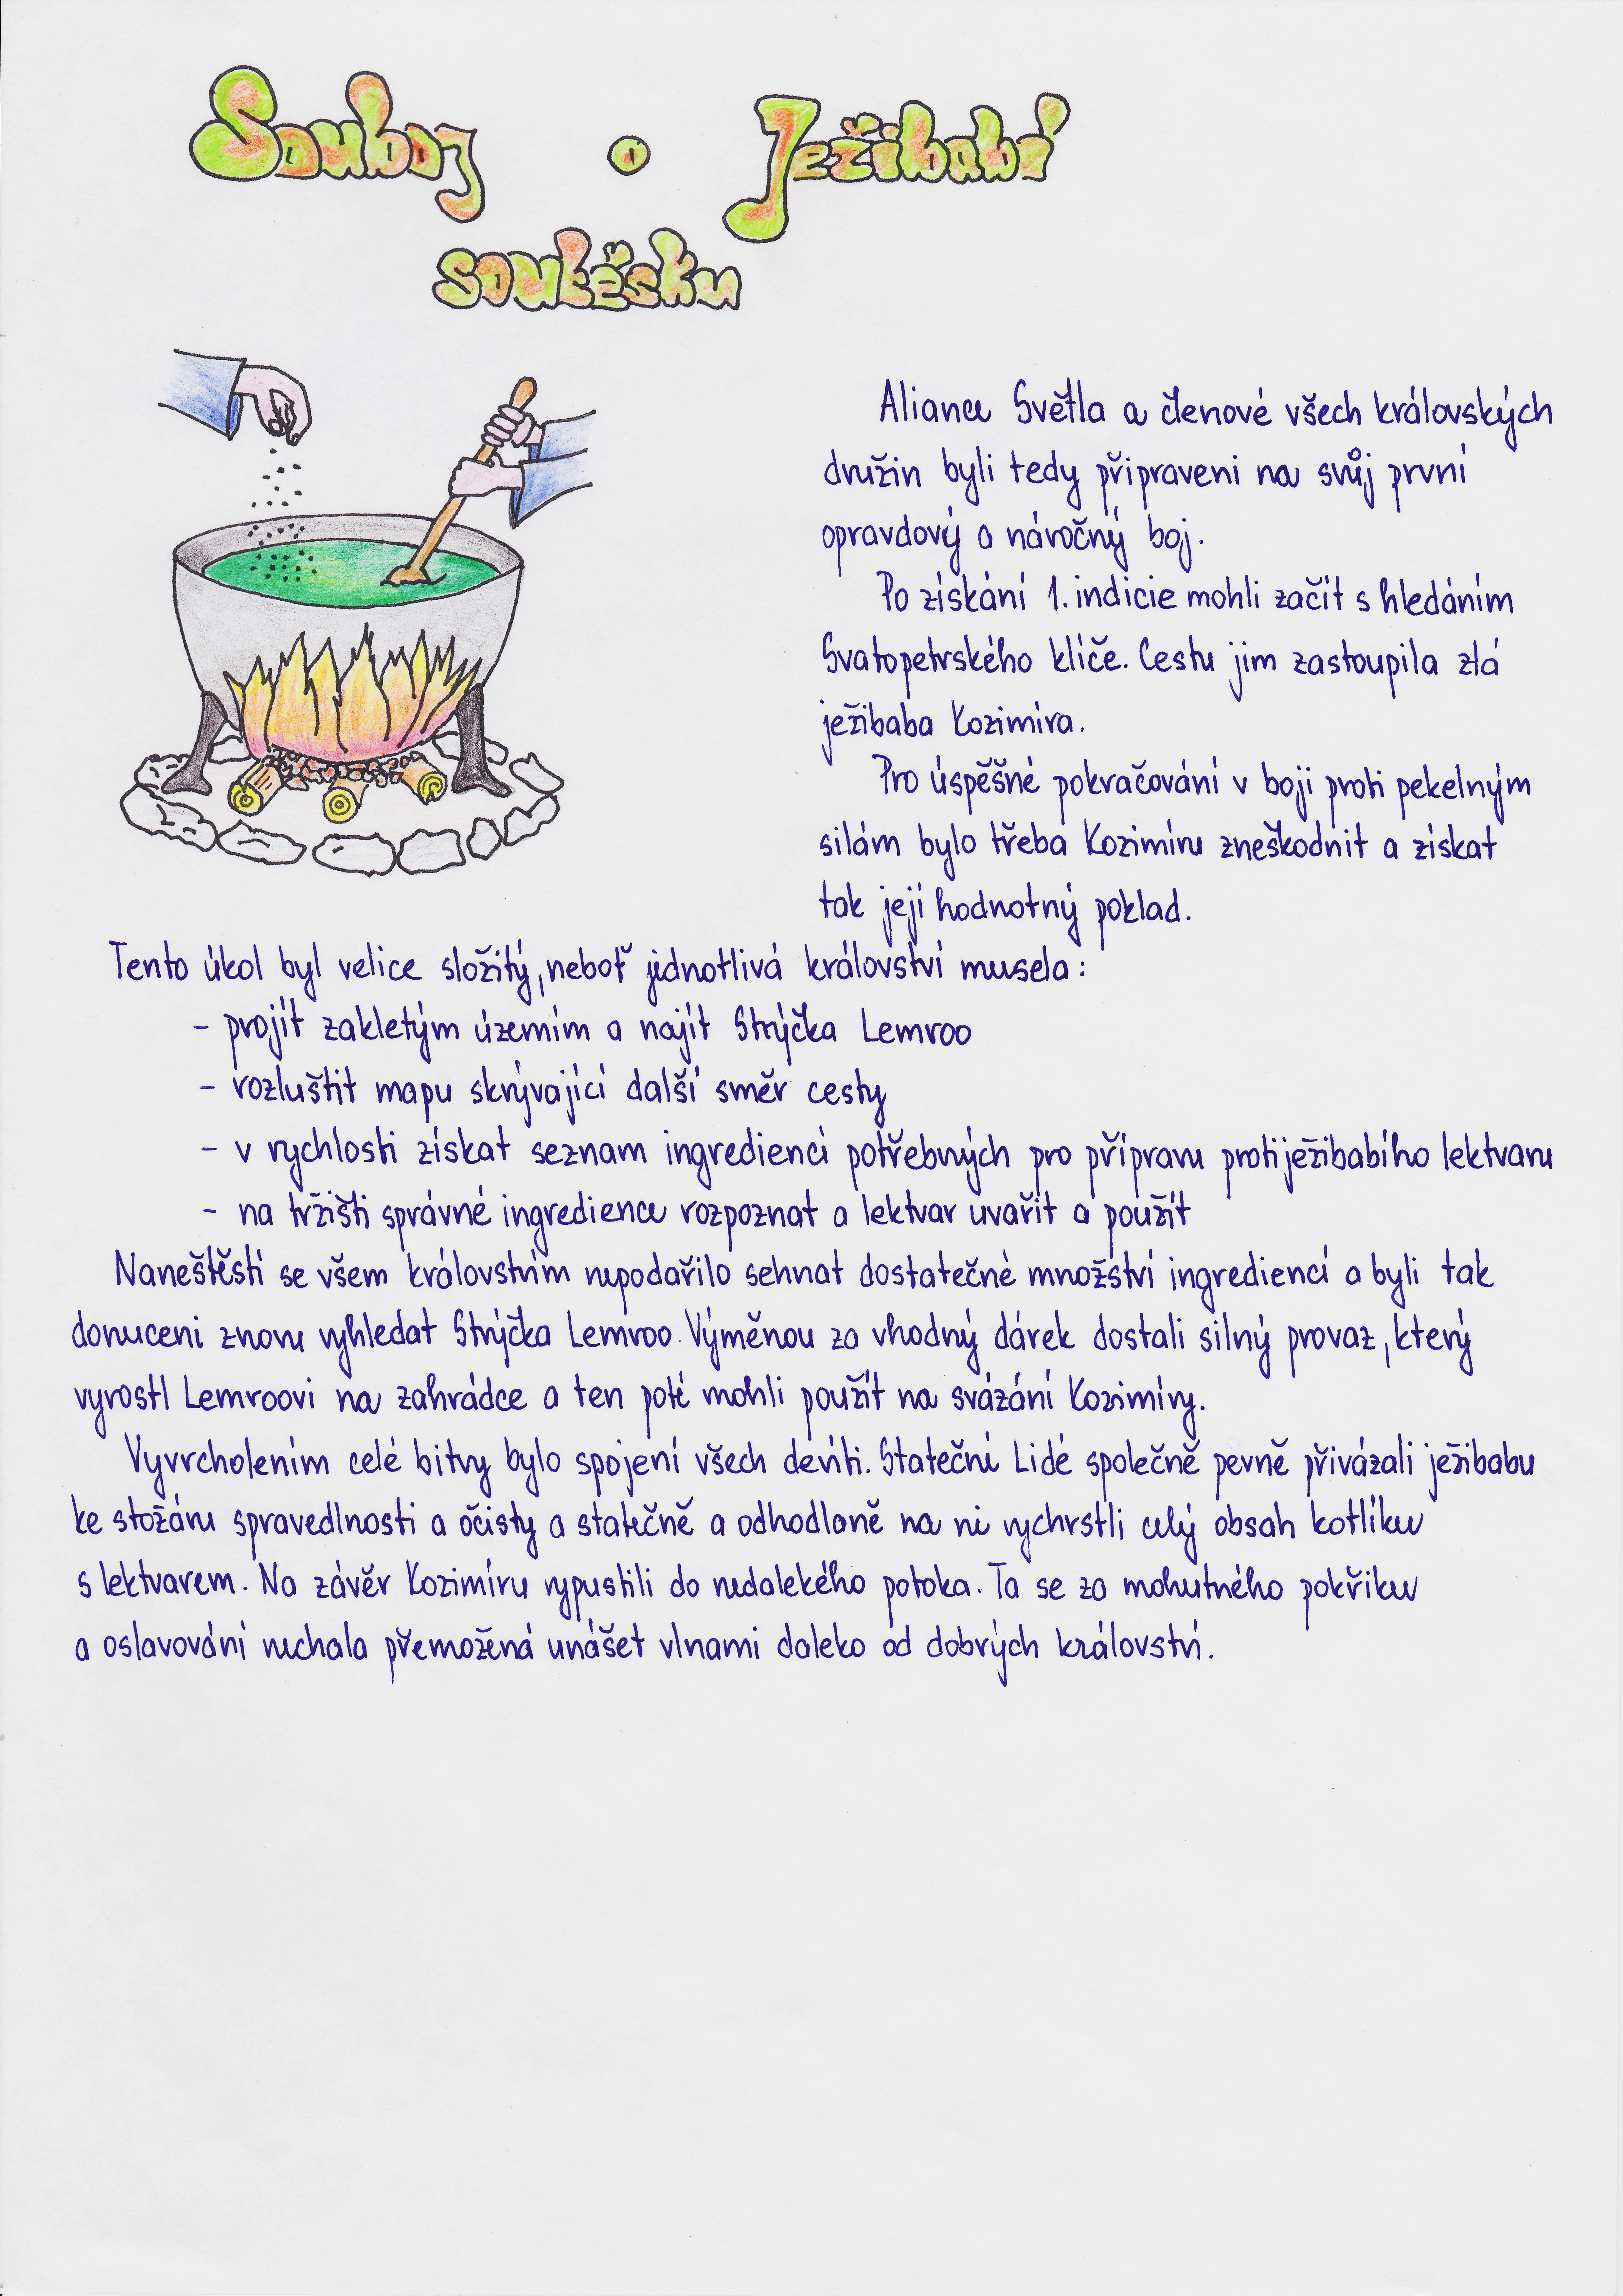 Souboj o Ježibabí
soutěsku
Aliance Světla a členové všech královských
družin byli tedy připraveni na svůj první
opravdový a náročný boj.
Po získání 1. indicie mohli začít s hledáním
Svatopetrského klíče. Cestu jim zastoupila zlá
ježibaba Kozimíra.
Pro úspěšné pokračování v boji proti pekelným
silám bylo třeba Kozimíru zneškodnit a získat
tak její hodnotný poklad.
Tento úkol byl velice složitý, neboť jednotlivá království musela:
- projít zakletým územím a najít Strýčka Lemroo
- rozluštit mapu skrývající další směr cesty
- v rychlosti získat seznam ingrediencí potřebných pro přípravu protiježibabího lektvaru
- na tržišti správné ingredience rozpoznat a lektvar uvařit a použít
Naneštěstí se všem královstvím nepodařilo sehnat dostatečné množství ingrediencí a byli tak
donuceni znovu vyhledat Strýčka Lemroo. Výměnou za vhodný dárek dostali silný provaz, který
vyrostl Lemroovi na zahrádce a ten poté mohli použít na svázání Kozimíry.
Vyvrcholením celé bitvy bylo spojení všech devíti. Stateční Lidé společně pevně přivázali ježibabu
ke stožáru spravedlnosti a očisty a statečně a odhodlaně na ni vychrstli celý obsah kotlíku
s lektvarem. Na závěr Kozimíru vypustili do nedalekého potoka. Ta se za mohutného pokřiku
a oslavování nechala přemožená unášet vlnami daleko od dobrých království.